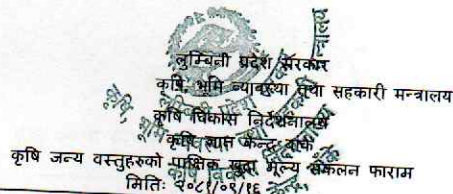 लुम्बिनी प्रदेश सरकार
कृषि, भूमि व्यवस्था तथा सहकारी मन्त्रालय
कृषि विकास निर्देशनालय
कृषि ज्ञान केन्द्र, बाँके
कृषि जन्य वस्तुहरुको पाक्षिक खुद्रा मूल्य संकलन फाराम
मितिः २०८१/०९/१६